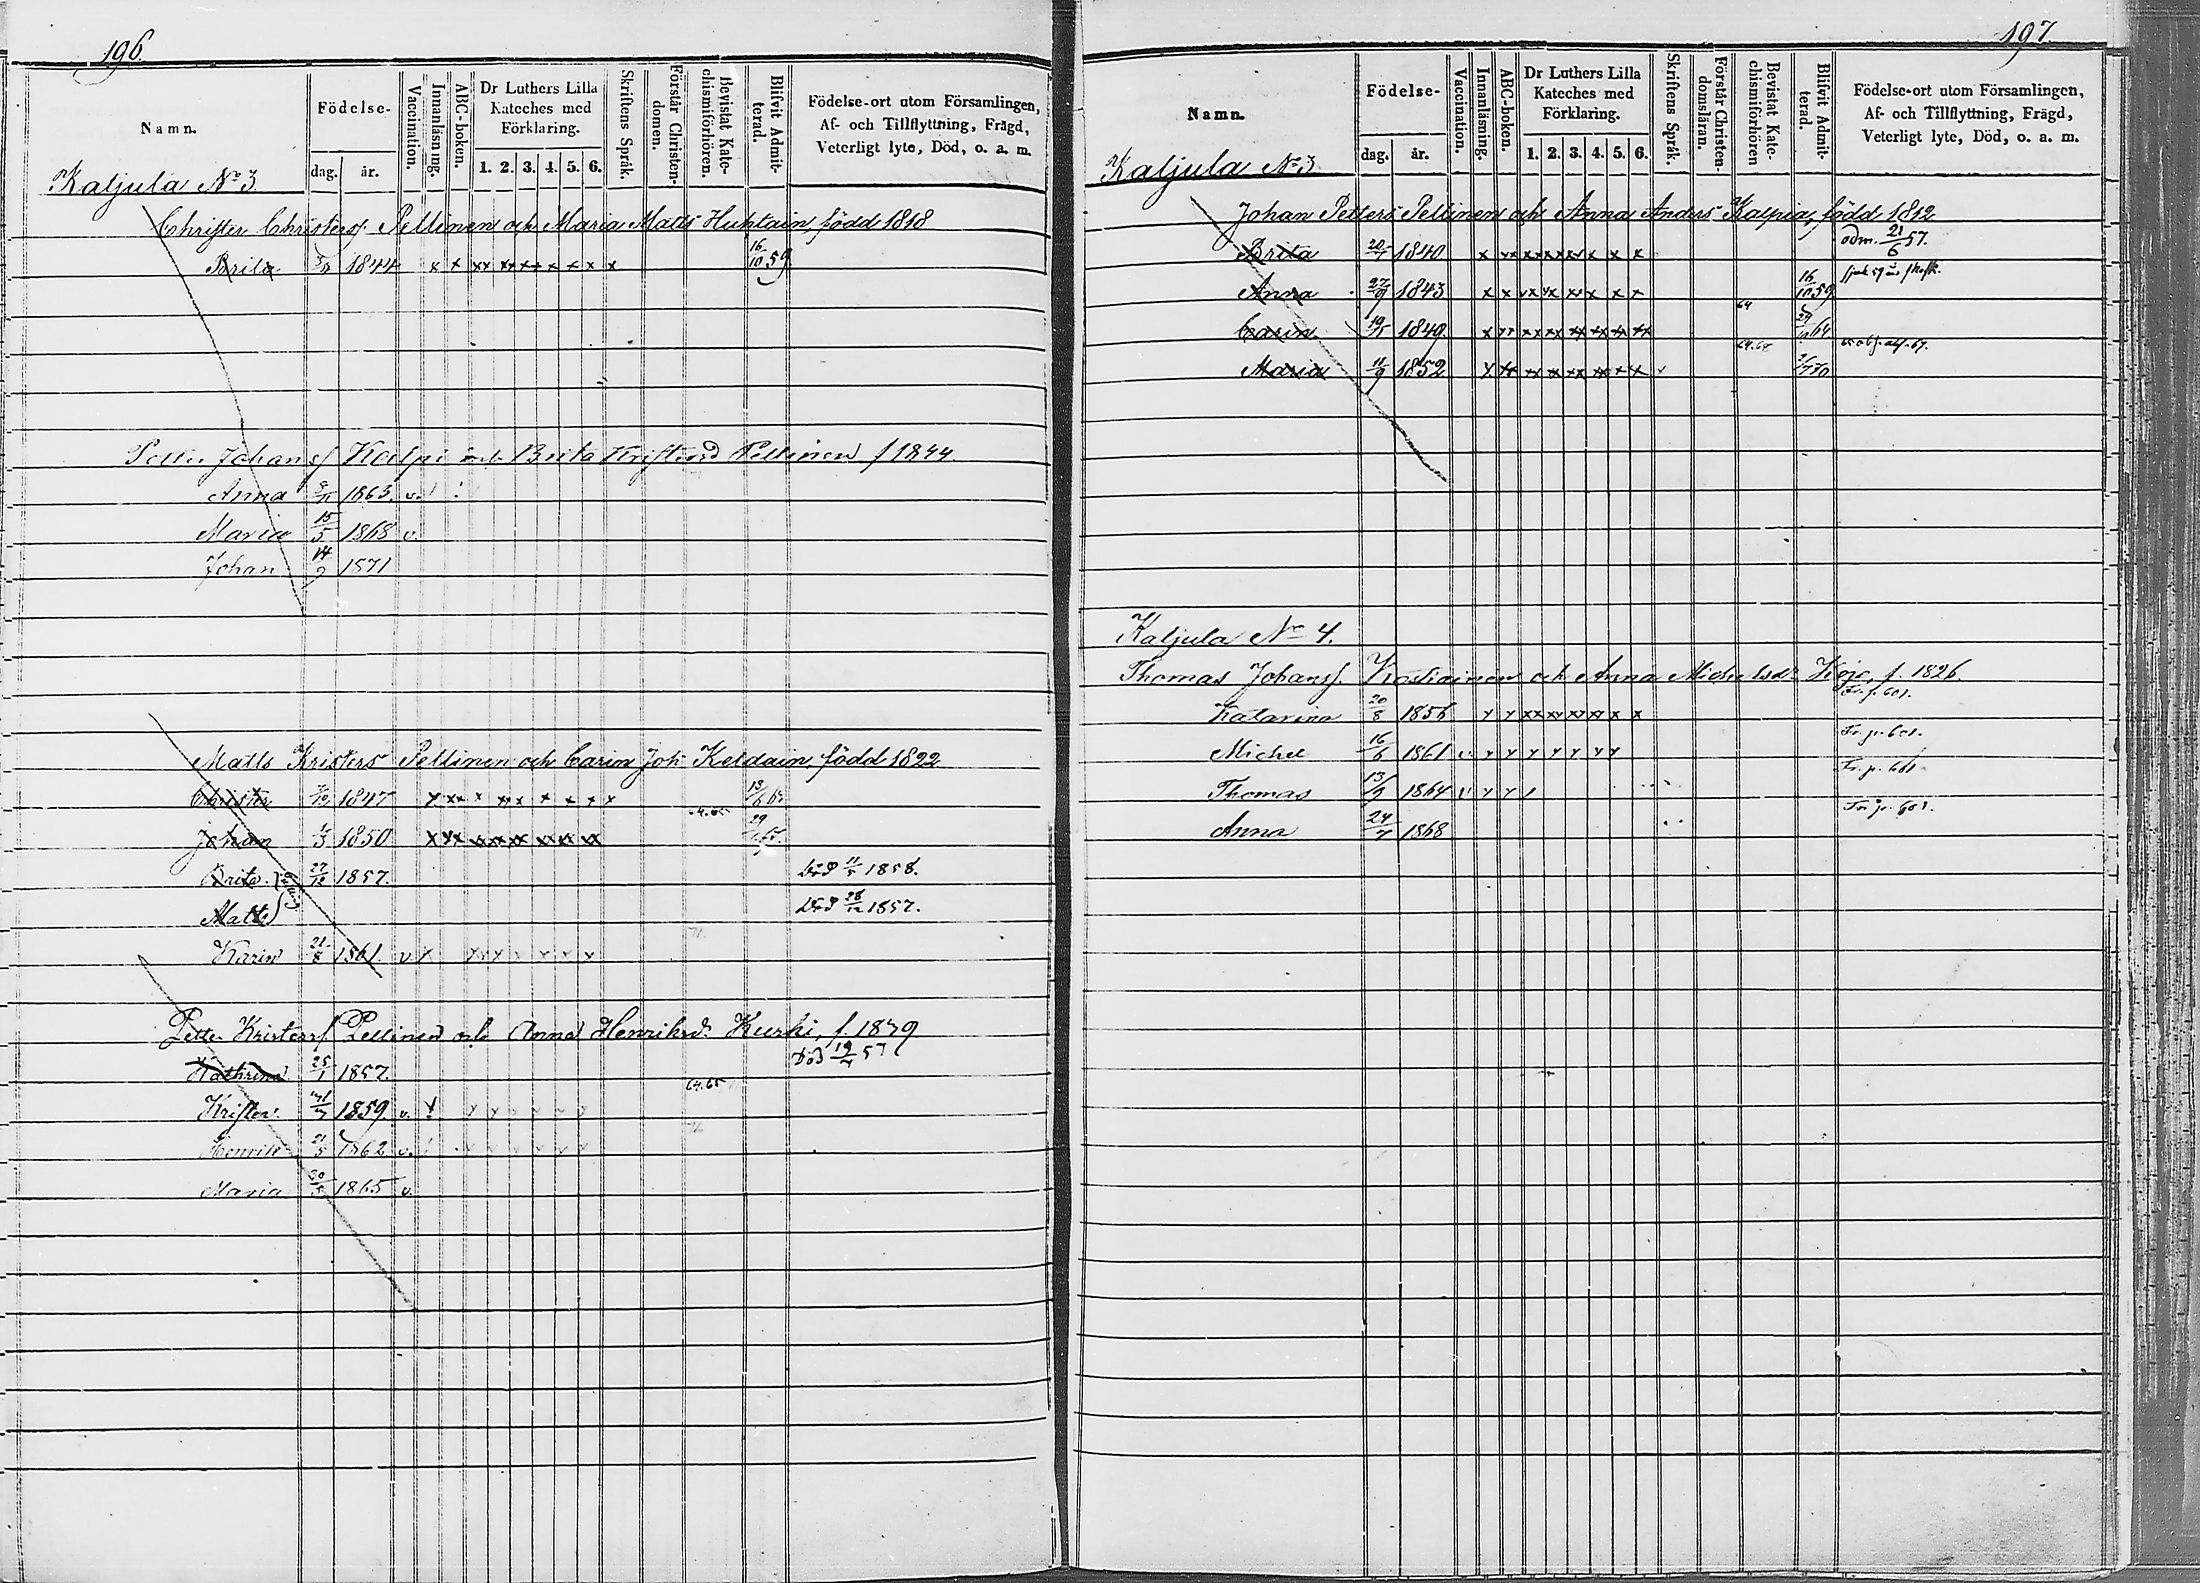 196.
Namn.
Födelse-
dag. år.
Vaccination.
Innanläsning.
ABC-boken.
Dr Luthers Lilla Kateches med Förklaring.
1. 2. 3. 4. 5. 6.
Skriftens Språk.
Förstår Christendomen.
Bevistat Katechismiförhören.
Blifvit Admitterad.
Födelse-ort utom Församlingen,
Af- och Tillflyttning, Frägd,
Veterligt lyte, Död, o. a. m.
Kaljula No 3
Christer Christers Pellinen och Maria Matts Huhtain, född 1818
Brita 1844 x x xx xx xx x x x x 16/10 59
Petter Johans Kalpi och Brita Kristersd Pellinen f 1844
Anna 1863 v.
Maria 15/5 1868 v.
Johan 14/9 1871
Matts Kristers Pellinen och Carin Joh Keldain, född 1822
Christer 1847
64.65
Johan 1850
Brita 27/12 1857. Död 11/5 1858.
Matts Död 28/12 1857.
Karin 21/8 1861. v
Petter Kristers Pellinen och Anna Henriksd. Kurki, f. 1839
Kathrina 25/1 1857. Död 19/4 57
64.65
Krister 1859 v.
Henrik 21/5 1862 v.
Maria 1865 v.
197.
Namn.
Födelse-
dag. år.
Vaccination.
Innanläsning.
ABC-boken.
Dr Luthers Lilla Kateches med Förklaring.
1. 2. 3. 4. 5. 6.
Skriftens Språk.
Förstår Christendomsläran.
Bevistat Katechismiförhören
Blifvit Admitterad.
Födelse-ort utom Församlingen,
Af- och Tillflyttning, Frägd,
Veterligt lyte, Död, o. a. m.
Kaljula No 3.
Johan Petters Pellinen och Anna Anders Kalpia, född 1812
Brita 1840 adm. 21/6 57.
Anna 27/9 1843 16/10 59
64
Carin 1849 64
64.68
Maria 11/9 1852 70
Kaljula No 4.
Thomas Johans. Kostiainen och Anna Michelsdr Koje, f. 1826.
Katarina 20/8 1856 Fr. p. 601.
Michel 16/6 1861 v Fr. p. 601.
Thomas 13/9 1864 v Fr. p. 601
Anna 24/7 1868 Fr. p. 601.